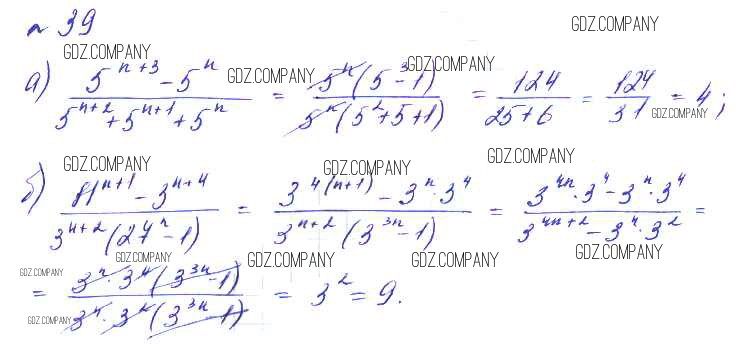 № 39
а) (5^(n+3) - 5^n)/(5^(n+2) + 5^(n+1) + 5^n) = (5^n(5^3 - 1))/(5^n(5^2 + 5 + 1)) = 124/(25 + 6) = 124/31 = 4;
б) (81^(n+1) - 3^(n+4))/(3^(n+2)(27^n - 1)) = (3^(4(n+1)) - 3^n · 3^4)/(3^(n+2)(3^(3n) - 1)) = (3^(4n) · 3^4 - 3^n · 3^4)/(3^(4n+2) - 3^n · 3^2) =
= (3^n · 3^4(3^(3n) - 1))/(3^n · 3^2(3^(3n) - 1)) = 3^2 = 9.
GDZ.COMPANY
GDZ.COMPANY
GDZ.COMPANY
GDZ.COMPANY
GDZ.COMPANY
GDZ.COMPANY
GDZ.COMPANY
GDZ.COMPANY
GDZ.COMPANY
GDZ.COMPANY
GDZ.COMPANY
GDZ.COMPANY
GDZ.COMPANY
GDZ.COMPANY